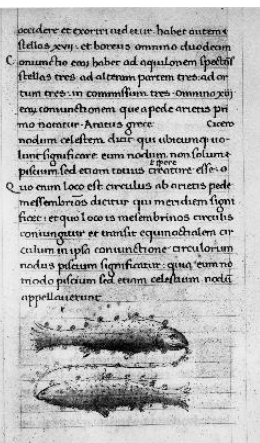 occidere et exoriri uidetur. habet autem
stellas xvii. et boreus omnino duodecim
Coniunctio eorum habet ad aquilonem spectans
stellas tres. ad alteram partem tres. ad or
tum tres. in commissum tres. omnino xii
eorum coniunctionem que a pede arietis pri
mo notatur. Aratus grece Cicero
nodum celestem dicit qui utcumque uo
lunt significare eum nodum non solum
piscium sed etiam totius creature esse.
Quo enim loco est circulus ab arietis pede
messembrios dicitur qui meridiem signi
ficet. et quo loco is mesembrinos circulus
coniungitur et transit equinoctialem cir
culum in ipsa coniunctione circulorum
nodus piscium significatur. quia eum no
modo piscium sed etiam celestium nodum
appellauerunt